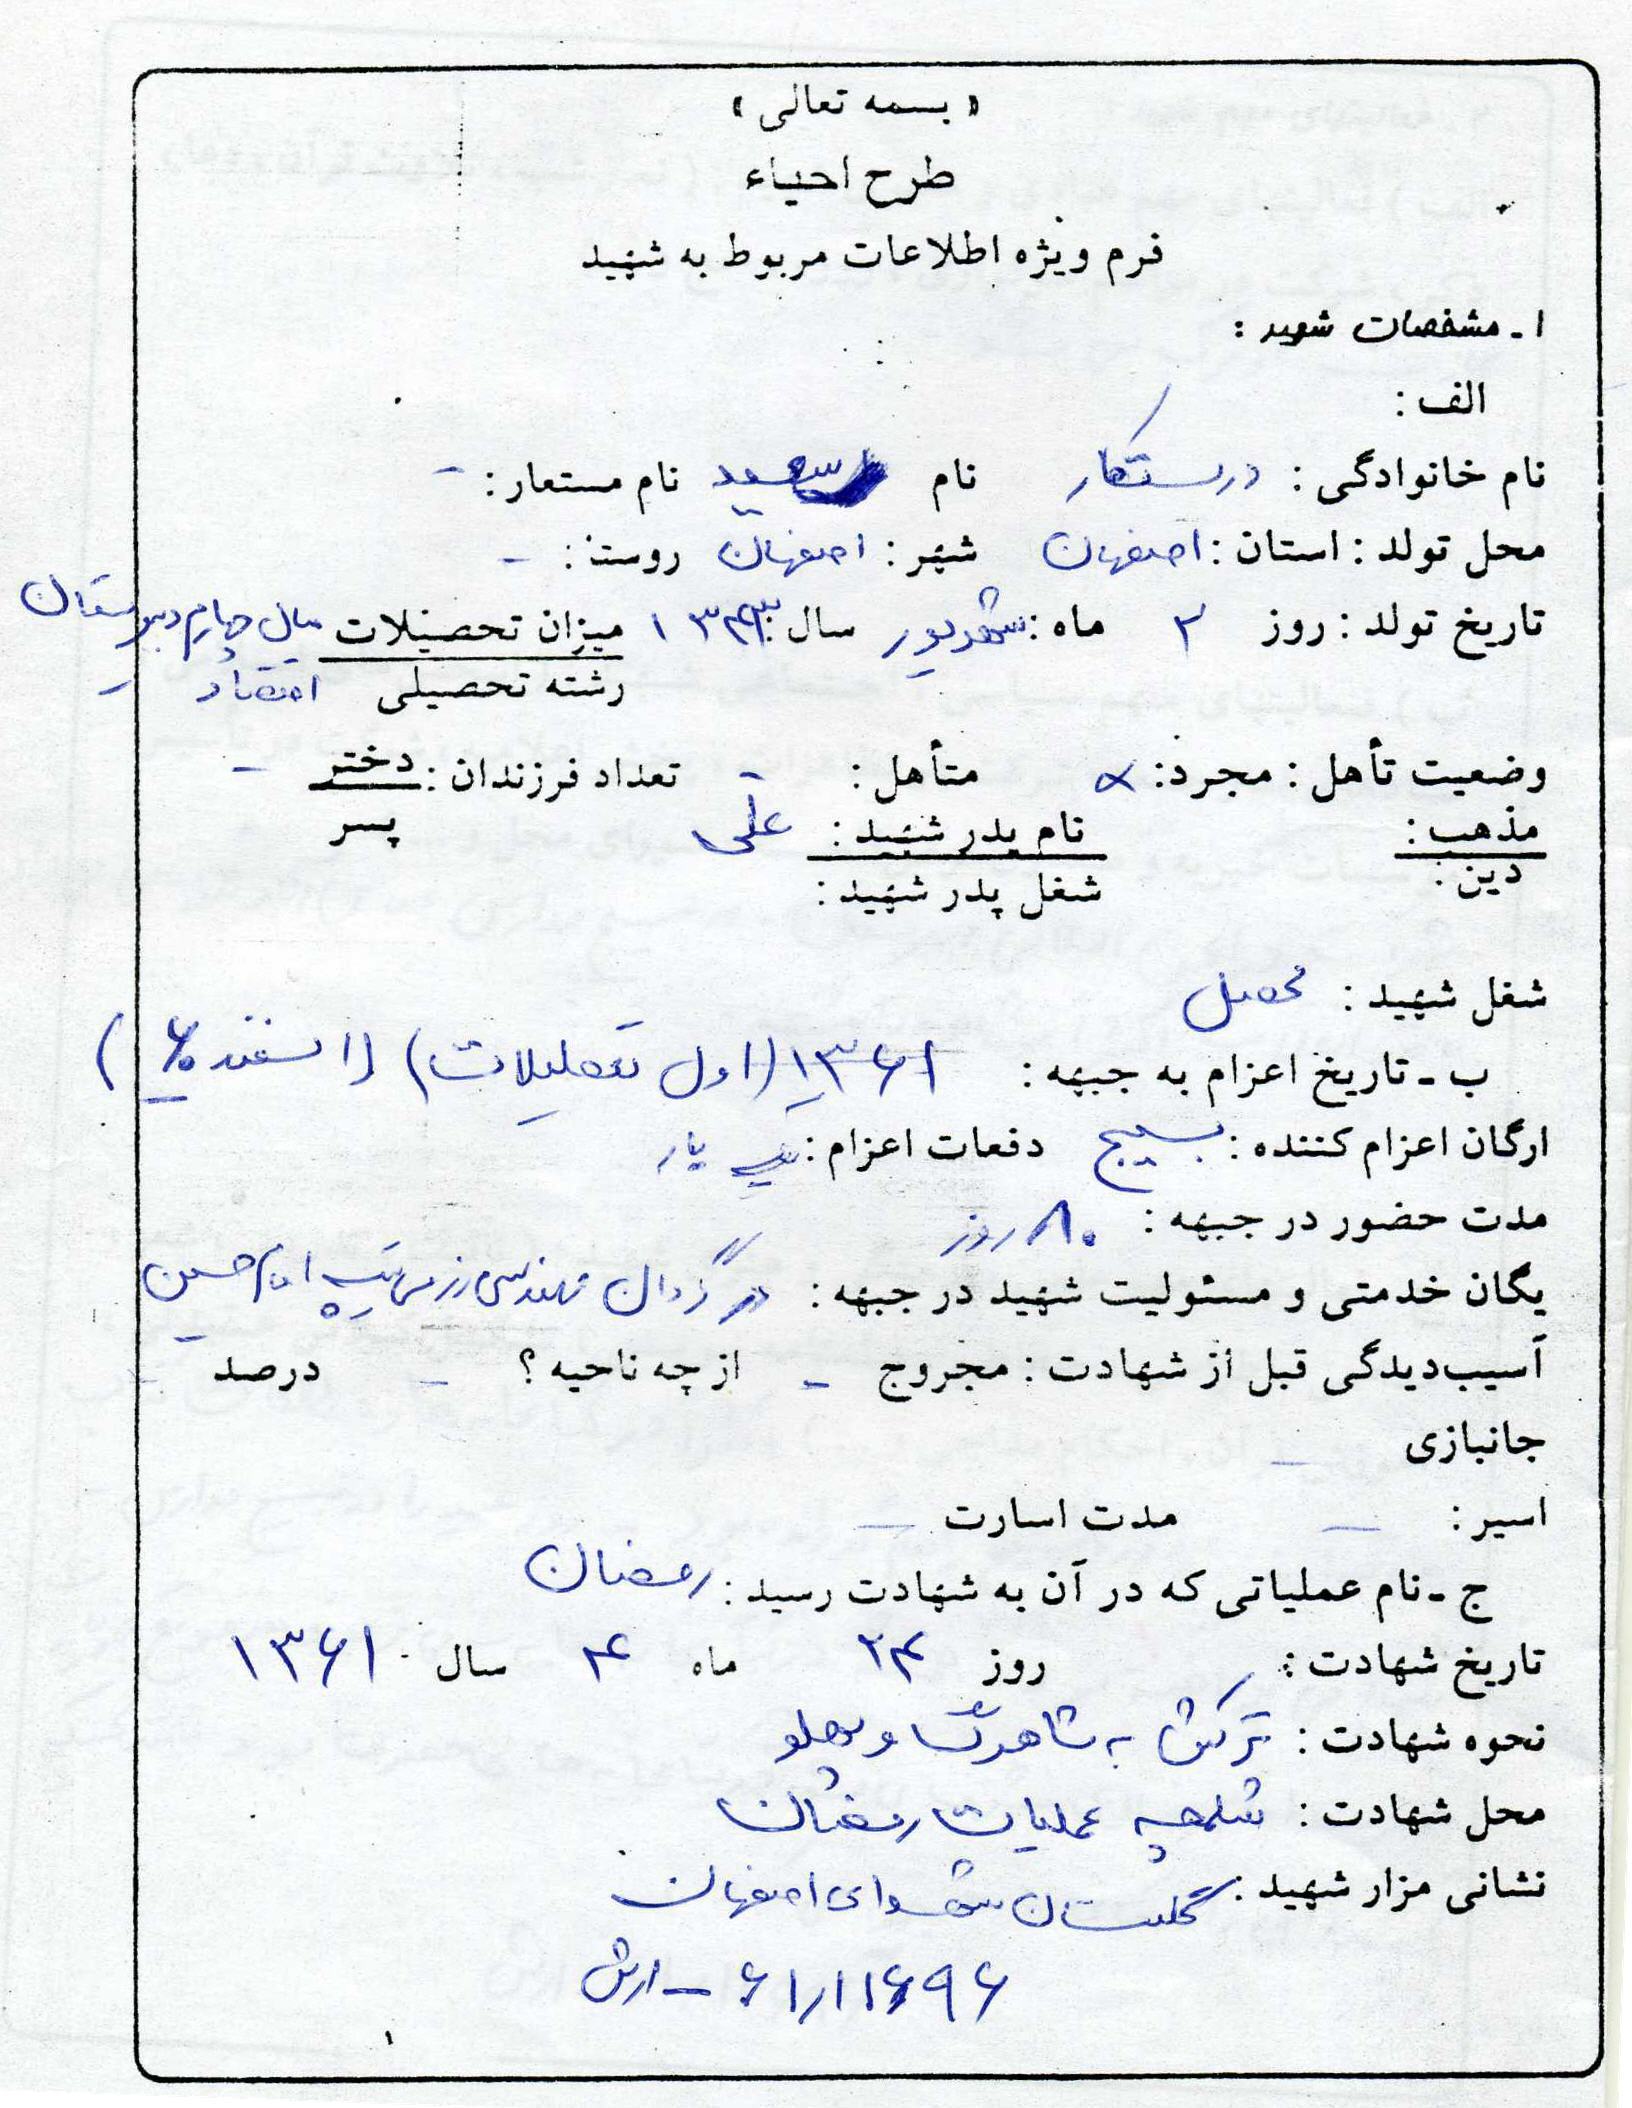 « بسمه تعالی »
طرح احیاء
فرم ویژه اطلاعات مربوط به شهید
۱ ـ مشخصات شهید :
الف :
نام خانوادگی : درستکار نام سعید نام مستعار : -
محل تولد : استان : اصفهان شهر : اصفهان روستا : -
تاریخ تولد : روز ۲ ماه : شهریور سال : ۱۳۴۳ میزان تحصیلات سال چهارم دبیرستان
رشته تحصیلی اقتصاد -
وضعیت تأهل : مجرد : × متأهل : - تعداد فرزندان : دختر -
مذهب : نام پدر شهید : علی پسر
دین : شغل پدر شهید :
شغل شهید : محصل
ب ـ تاریخ اعزام به جبهه : ۱۳۶۱ (اول تعطیلات) (اسفند ۶۰)
ارگان اعزام کننده : بسیج دفعات اعزام : یک بار
مدت حضور در جبهه : ۸۰ روز
یگان خدمتی و مسئولیت شهید در جبهه : در گردان مهندسی رزمی تیپ امام حسین
آسیب‌دیدگی قبل از شهادت : مجروح - از چه ناحیه ؟ - درصد -
جانبازی -
اسیر : - مدت اسارت -
ج ـ نام عملیاتی که در آن به شهادت رسید : رمضان
تاریخ شهادت : روز ۲۴ ماه ۴ سال ۱۳۶۱
نحوه شهادت : ترکش به شاهرگ و پهلو
محل شهادت : شلمچه عملیات رمضان
نشانی مزار شهید : گلستان شهدای اصفهان
۶۱/۱۱۶۹۶ -
۱